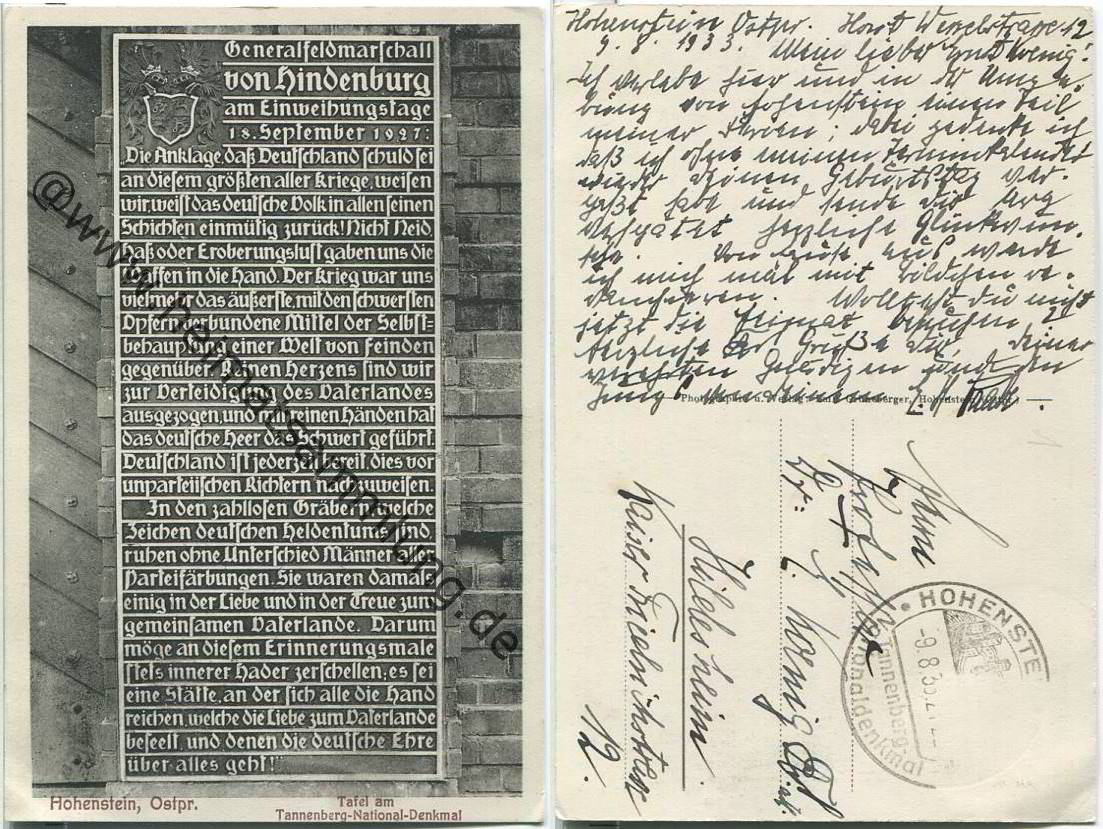 Generalfeldmarschall
von Hindenburg
am Einweihungstage
18. September 1927:
„Die Anklage, daß Deutschland schuld sei
an diesem größten aller Kriege, weisen
wir, weist das deutsche Volk in allen seinen
Schichten einmütig zurück! Nicht Neid,
Haß oder Eroberungslust gaben uns die
Waffen in die Hand. Der Krieg war uns
vielmehr das äußerste, mit den schwersten
Opfern verbundene Mittel der Selbst-
behauptung einer Welt von Feinden
gegenüber. Reinen Herzens sind wir
zur Verteidigung des Vaterlandes
ausgezogen, und mit reinen Händen hat
das deutsche Heer das Schwert geführt.
Deutschland ist jederzeit bereit, dies vor
unparteiischen Richtern nachzuweisen.
In den zahllosen Gräbern, welche
Zeichen deutschen Heldentums sind,
ruhen ohne Unterschied Männer aller
Parteifärbungen. Sie waren damals
einig in der Liebe und in der Treue zum
gemeinsamen Vaterlande. Darum
möge an diesem Erinnerungsmale
stets innerer Hader zerschellen; es sei
eine Stätte, an der sich alle die Hand
reichen, welche die Liebe zum Vaterlande
beseelt, und denen die deutsche Ehre
über alles geht!"
Hohenstein, Ostpr.
Tafel am
Tannenberg-National-Denkmal
@www.heimatsammlung.de
Hohenstein Ostpr. Horst Wesselstrasse 12.
9. 8. 1933. Mein lieber
Ich verlebe hier und in der Umge-
bung von Hohenstein einen Teil
meiner Ferien; dabei gedenke ich
daß ich ohne meinen Terminkalender
wieder Deinen Geburtstag ver-
gaß habe und sende Dir arg
verspätet herzliche Glückwün-
sche. Von Hause aus werde
ich mich mal mit Bildchen re-
vanchieren. Wolltest du nicht
jetzt die Heimat besuchen?
Herzliche Grüße Dir, Deiner
verehrten und den
Photographie u. Verlag Hohenstein
Herrn
Professor
Dr. Koenig
Hildesheim
Kaiser Friedrichstr.
12.
HOHENSTE
-9.8.33.
Tannenberg-
Nationaldenkmal